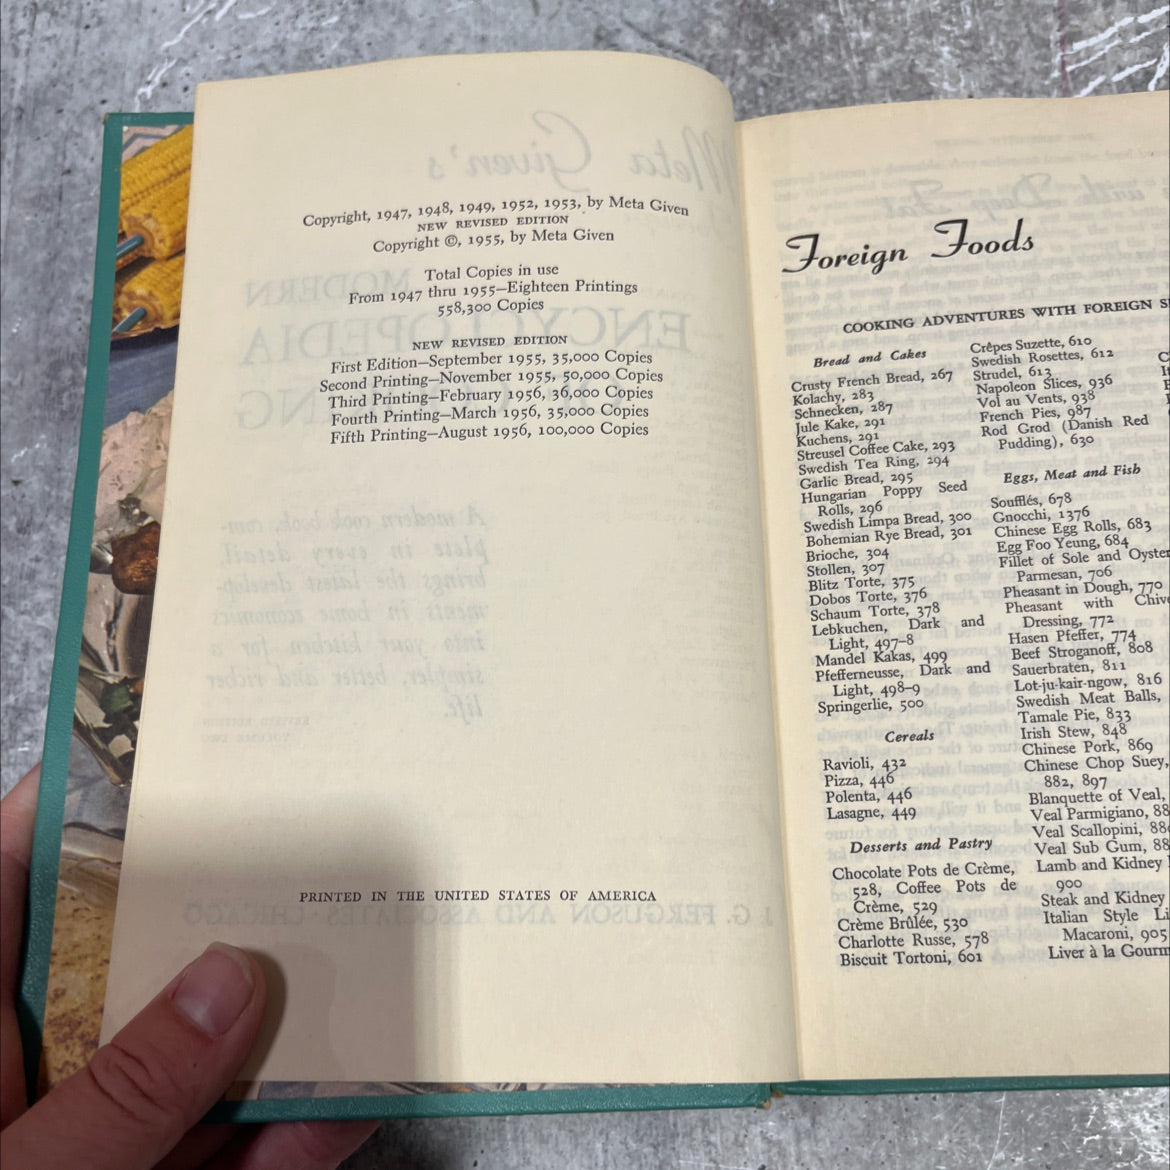 Copyright, 1947, 1948, 1949, 1952, 1953, by Meta Given
NEW REVISED EDITION
Copyright ©, 1955, by Meta Given
Total Copies in use
From 1947 thru 1955—Eighteen Printings
558,300 Copies
NEW REVISED EDITION
First Edition—September 1955, 35,000 Copies
Second Printing—November 1955, 50,000 Copies
Third Printing—February 1956, 36,000 Copies
Fourth Printing—March 1956, 35,000 Copies
Fifth Printing—August 1956, 100,000 Copies
PRINTED IN THE UNITED STATES OF AMERICA
Foreign Foods
COOKING ADVENTURES WITH FOREIGN
Bread and Cakes
Crusty French Bread, 267
Kolachy, 283
Schnecken, 287
Jule Kake, 291
Kuchens, 291
Streusel Coffee Cake, 293
Swedish Tea Ring, 294
Garlic Bread, 295
Hungarian Poppy Seed
Rolls, 296
Swedish Limpa Bread, 300
Bohemian Rye Bread, 301
Brioche, 304
Stollen, 307
Blitz Torte, 375
Dobos Torte, 376
Schaum Torte, 378
Lebkuchen, Dark and
Light, 497–8
Mandel Kakas, 499
Pfefferneusse, Dark and
Light, 498–9
Springerlie, 500
Cereals
Ravioli, 432
Pizza, 446
Polenta, 446
Lasagne, 449
Desserts and Pastry
Chocolate Pots de Crème,
528, Coffee Pots de
Crème, 529
Crème Brûlée, 530
Charlotte Russe, 578
Biscuit Tortoni, 601
Crêpes Suzette, 610
Swedish Rosettes, 612
Strudel, 613
Napoleon Slices, 936
Vol au Vents, 938
French Pies, 987
Rod Grod (Danish Red
Pudding), 630
Eggs, Meat and Fish
Soufflés, 678
Gnocchi, 1376
Chinese Egg Rolls, 683
Egg Foo Yeung, 684
Fillet of Sole and Oyster
Parmesan, 706
Pheasant in Dough, 770
Pheasant with
Dressing, 772
Hasen Pfeffer, 774
Beef Stroganoff, 808
Sauerbraten, 811
Lot-ju-kair-ngow, 816
Swedish Meat Balls,
Tamale Pie, 833
Irish Stew, 848
Chinese Pork, 869
Chinese Chop Suey,
882, 897
Blanquette of Veal,
Veal Parmigiano,
Veal Scallopini,
Veal Sub Gum,
Lamb and Kidney
900
Steak and Kidney
Italian Style
Macaroni, 905
Liver à la